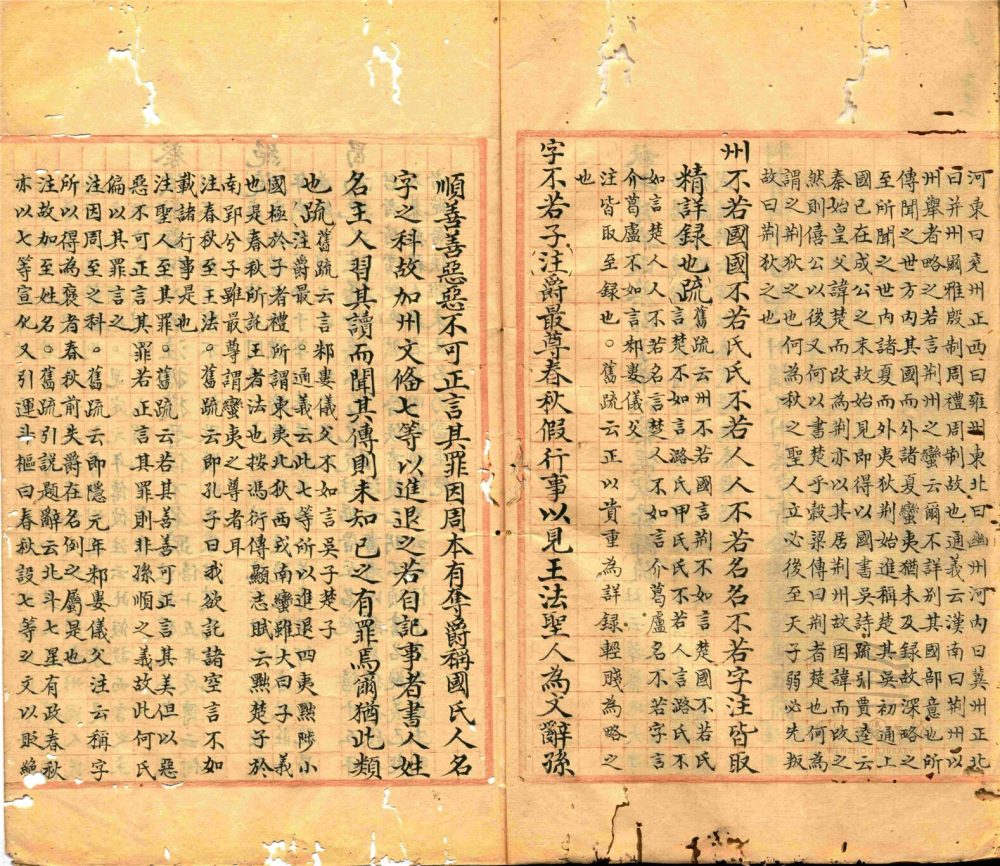 河東曰兖州正西曰雍州東北曰幽州河內曰冀州正北
曰并州爾雅殷制周禮周制故也通義云漢南曰荆州以
州舉者略之若言荆州之蠻云爾不詳別其國部意也所
傳聞之世內其國而外諸夏蠻夷猶未及録故深略之
至所聞之世內諸夏而外夷狄即荆始進稱楚其吳初通上
國已在成公之末故始見即得以國書吳詩疏引賈逵云
秦始皇父諱楚而改為荆亦以其居荆州故因諱而改之
然則僖公以後又何以書楚乎穀梁傳曰荆者楚也何為
謂之荆狄之也何為狄之聖人立必後至天子弱必先叛
故曰荆狄之也
州不若國國不若氏氏不若人人不若名名不若字注皆取
精詳録也疏舊疏云州不若國言荆不如言楚國不若氏
言楚不如言潞氏甲氏氏不若人言潞氏不
如言楚人人不若名言楚人不如言介葛盧名不若字言
介葛盧不如言邾婁儀父
注皆取至録也。舊疏云正以貴重為詳録輕賤為略之
也
字不若子注爵最尊春秋假行事以見王法聖人為文辭孫
順善善惡惡不可正言其罪因周本有奪爵稱國氏人名
字之科故加州文偹七等以進退之若自記事者書人姓
名主人習其讀而聞其傳則未知已之有罪焉爾猶此類
也疏舊疏云言邾婁儀父不如言吳子楚子
注爵最尊。通義云此七等所以進退四夷黜陟小
國極於子者禮所謂東夷北狄西戎南蠻雖大曰子義
也是春秋所託王者法也按馮衍傳顯志賦云黜楚子於
南郢兮子雖最尊謂蠻夷之尊者耳
注春秋至王法。舊疏云即孔子曰我欲託諸空言不如
載諸行事是也
注聖人至其罪。舊疏云若其善善可正言其美但以惡
惡不可正言其罪若正言其罪則非孫順之義故此何氏
偏以其罪言之
注因周至之科。舊疏云即隱元年邾婁儀父注云稱字
所以得為褒者春秋前失爵在名例之屬是也
注故加至姓名。舊疏引說題辭云北斗七星有政春秋
亦以七等宣化又引運斗樞曰春秋設七等之文以貶絶